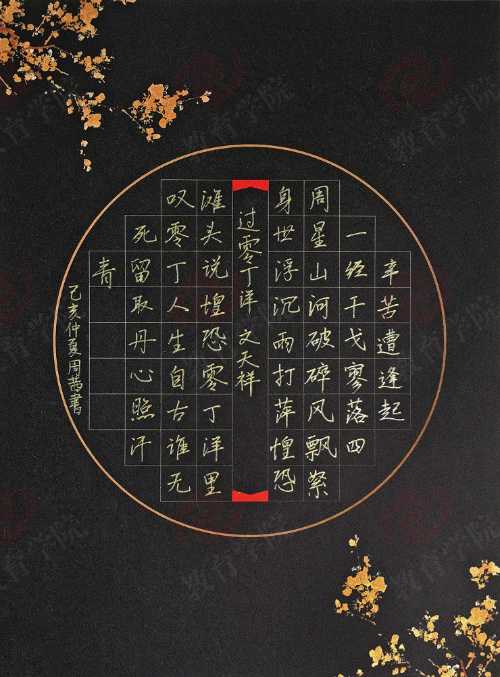 辛苦遭逢起
一经干戈寥落四
周星山河破碎风飘絮
身世浮沉雨打萍惶恐
过零丁洋 文天祥
滩头说惶恐零丁洋里
叹零丁人生自古谁无
死留取丹心照汗
青
己亥仲夏周書
教育学院
教育学院
教育学院
教育学院